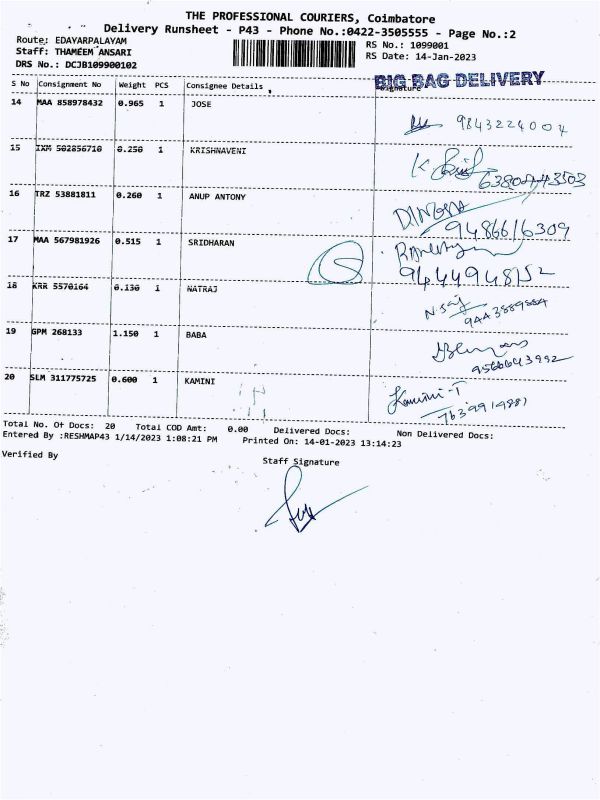 THE PROFESSIONAL COURIERS, Coimbatore
Delivery Runsheet - P43 - Phone No.:0422-3505555 - Page No.:2
Route: EDAYARPALAYAM RS No.: 1099001
Staff: THAMEEM ANSARI RS Date: 14-Jan-2023
DRS No.: DCJB109900102
BIG BAG DELIVERY
S No Consignment No Weight PCS Consignee Details Signature
14 MAA 858978432 0.965 1 JOSE
9843224004
15 IXM 502856710 0.250 1 KRISHNAVENI
16 TRZ 53881811 0.260 1 ANUP ANTONY
9486616309
17 MAA 567981926 0.515 1 SRIDHARAN
9444948152
18 KRR 5570164 0.130 1 NATRAJ
19 GPM 268133 1.150 1 BABA
9566643992
20 SLM 311775725 0.600 1 KAMINI
Kamini-T
7639914981
Total No. Of Docs: 20 Total COD Amt: 0.00 Delivered Docs: Non Delivered Docs:
Entered By :RESHMAP43 1/14/2023 1:08:21 PM Printed On: 14-01-2023 13:14:23
Verified By Staff Signature